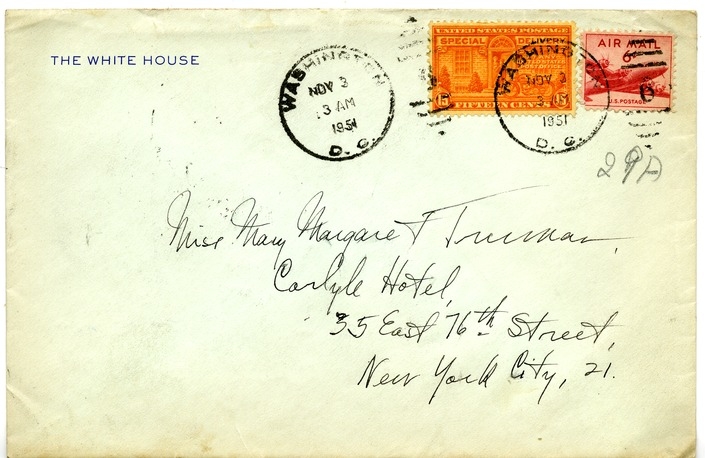 THE WHITE HOUSE
WASHINGTON
NOV 3
3 AM
1951
D. C.
UNITED STATES POSTAGE
SPECIAL DELIVERY
15 15
FIFTEEN CENTS
WASHINGTON
NOV 3
1951
D. C.
AIR MAIL
6¢
U.S. POSTAGE
29A
Miss Mary Margaret Truman,
Carlyle Hotel,
35 East 76th Street,
New York City, 21.